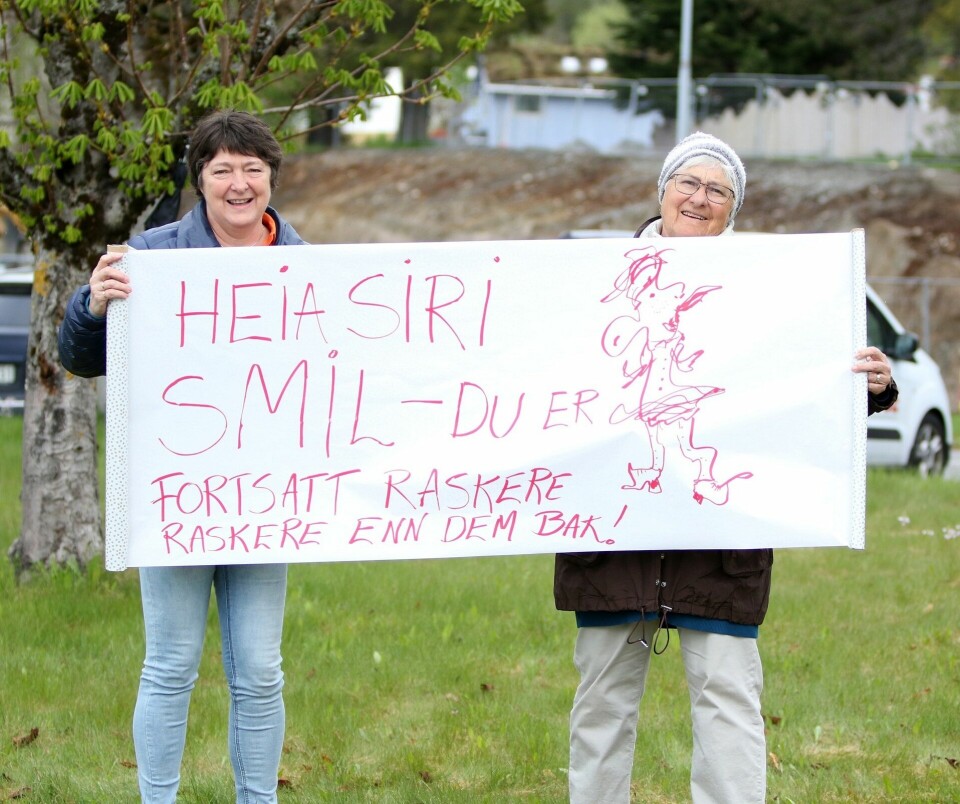 HEIA SIRI
SMIL - DU ER
FORTSATT RASKERE
RASKERE ENN DEM BAK!